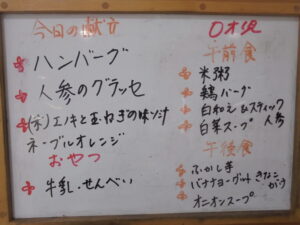 今日の献立
ハンバーグ
人参のグラッセ
(米)エノキと玉ねぎの味汁
ネーブルオレンジ
おやつ
牛乳・せんべい
0才児
午前食
米粥
鶏バーグ
白和え&スティック人参
白菜スープ
午後食
ふかし芋
バナナヨーグルトきなこがけ
オニオンスープ